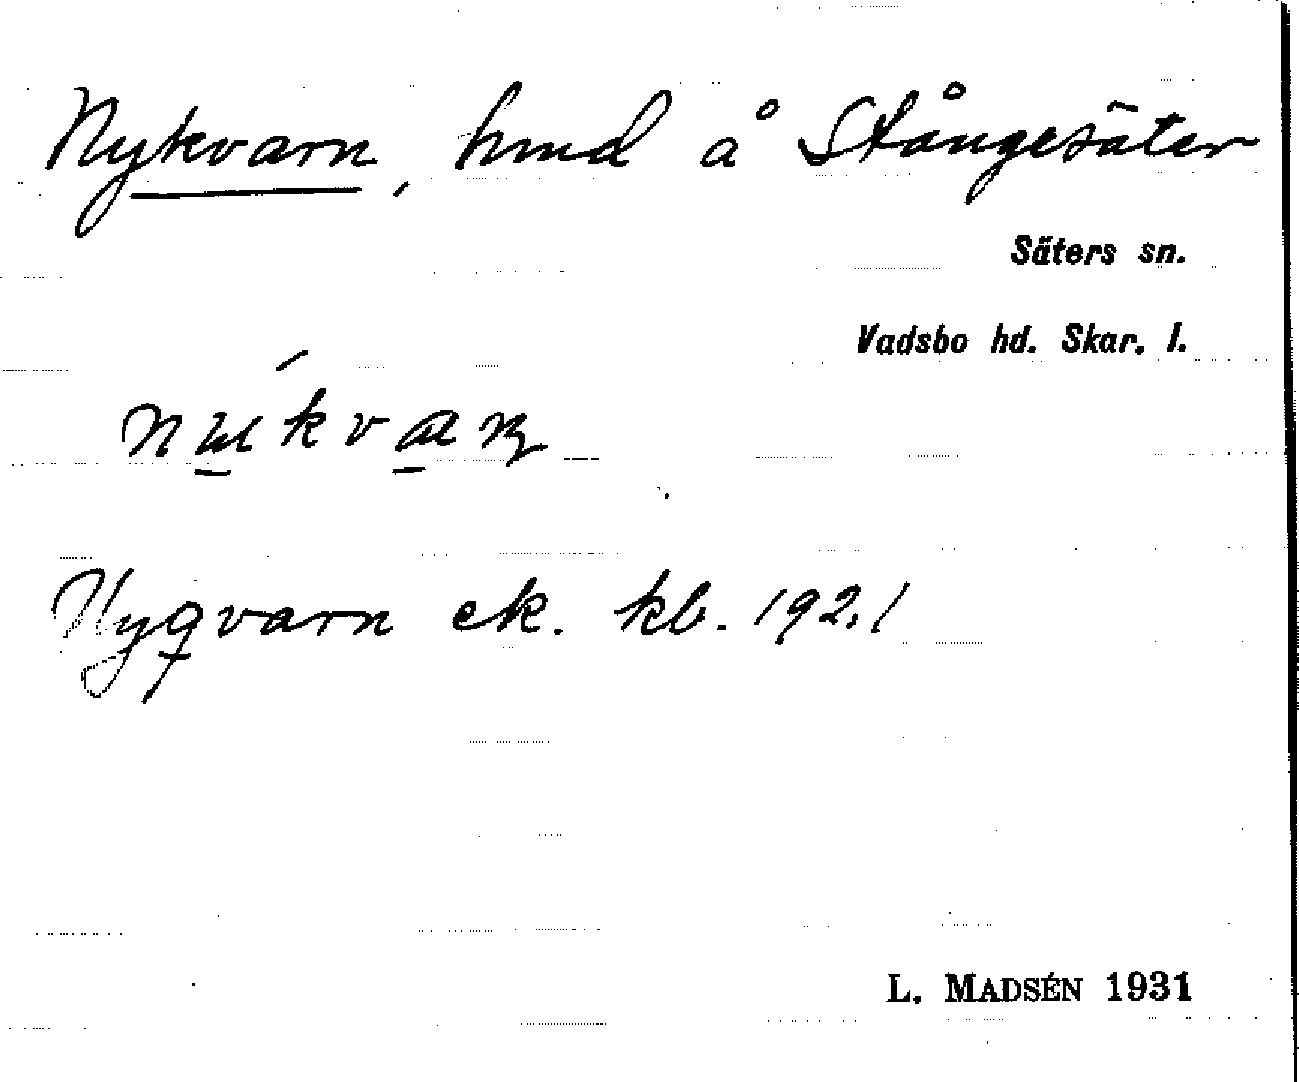 Nykvarn, hmd å Stångesäter
Säters sn.
Vadsbo hd. Skar. l.
Nyqvarn ek. kb. 1921
L. MADSÉN 1931